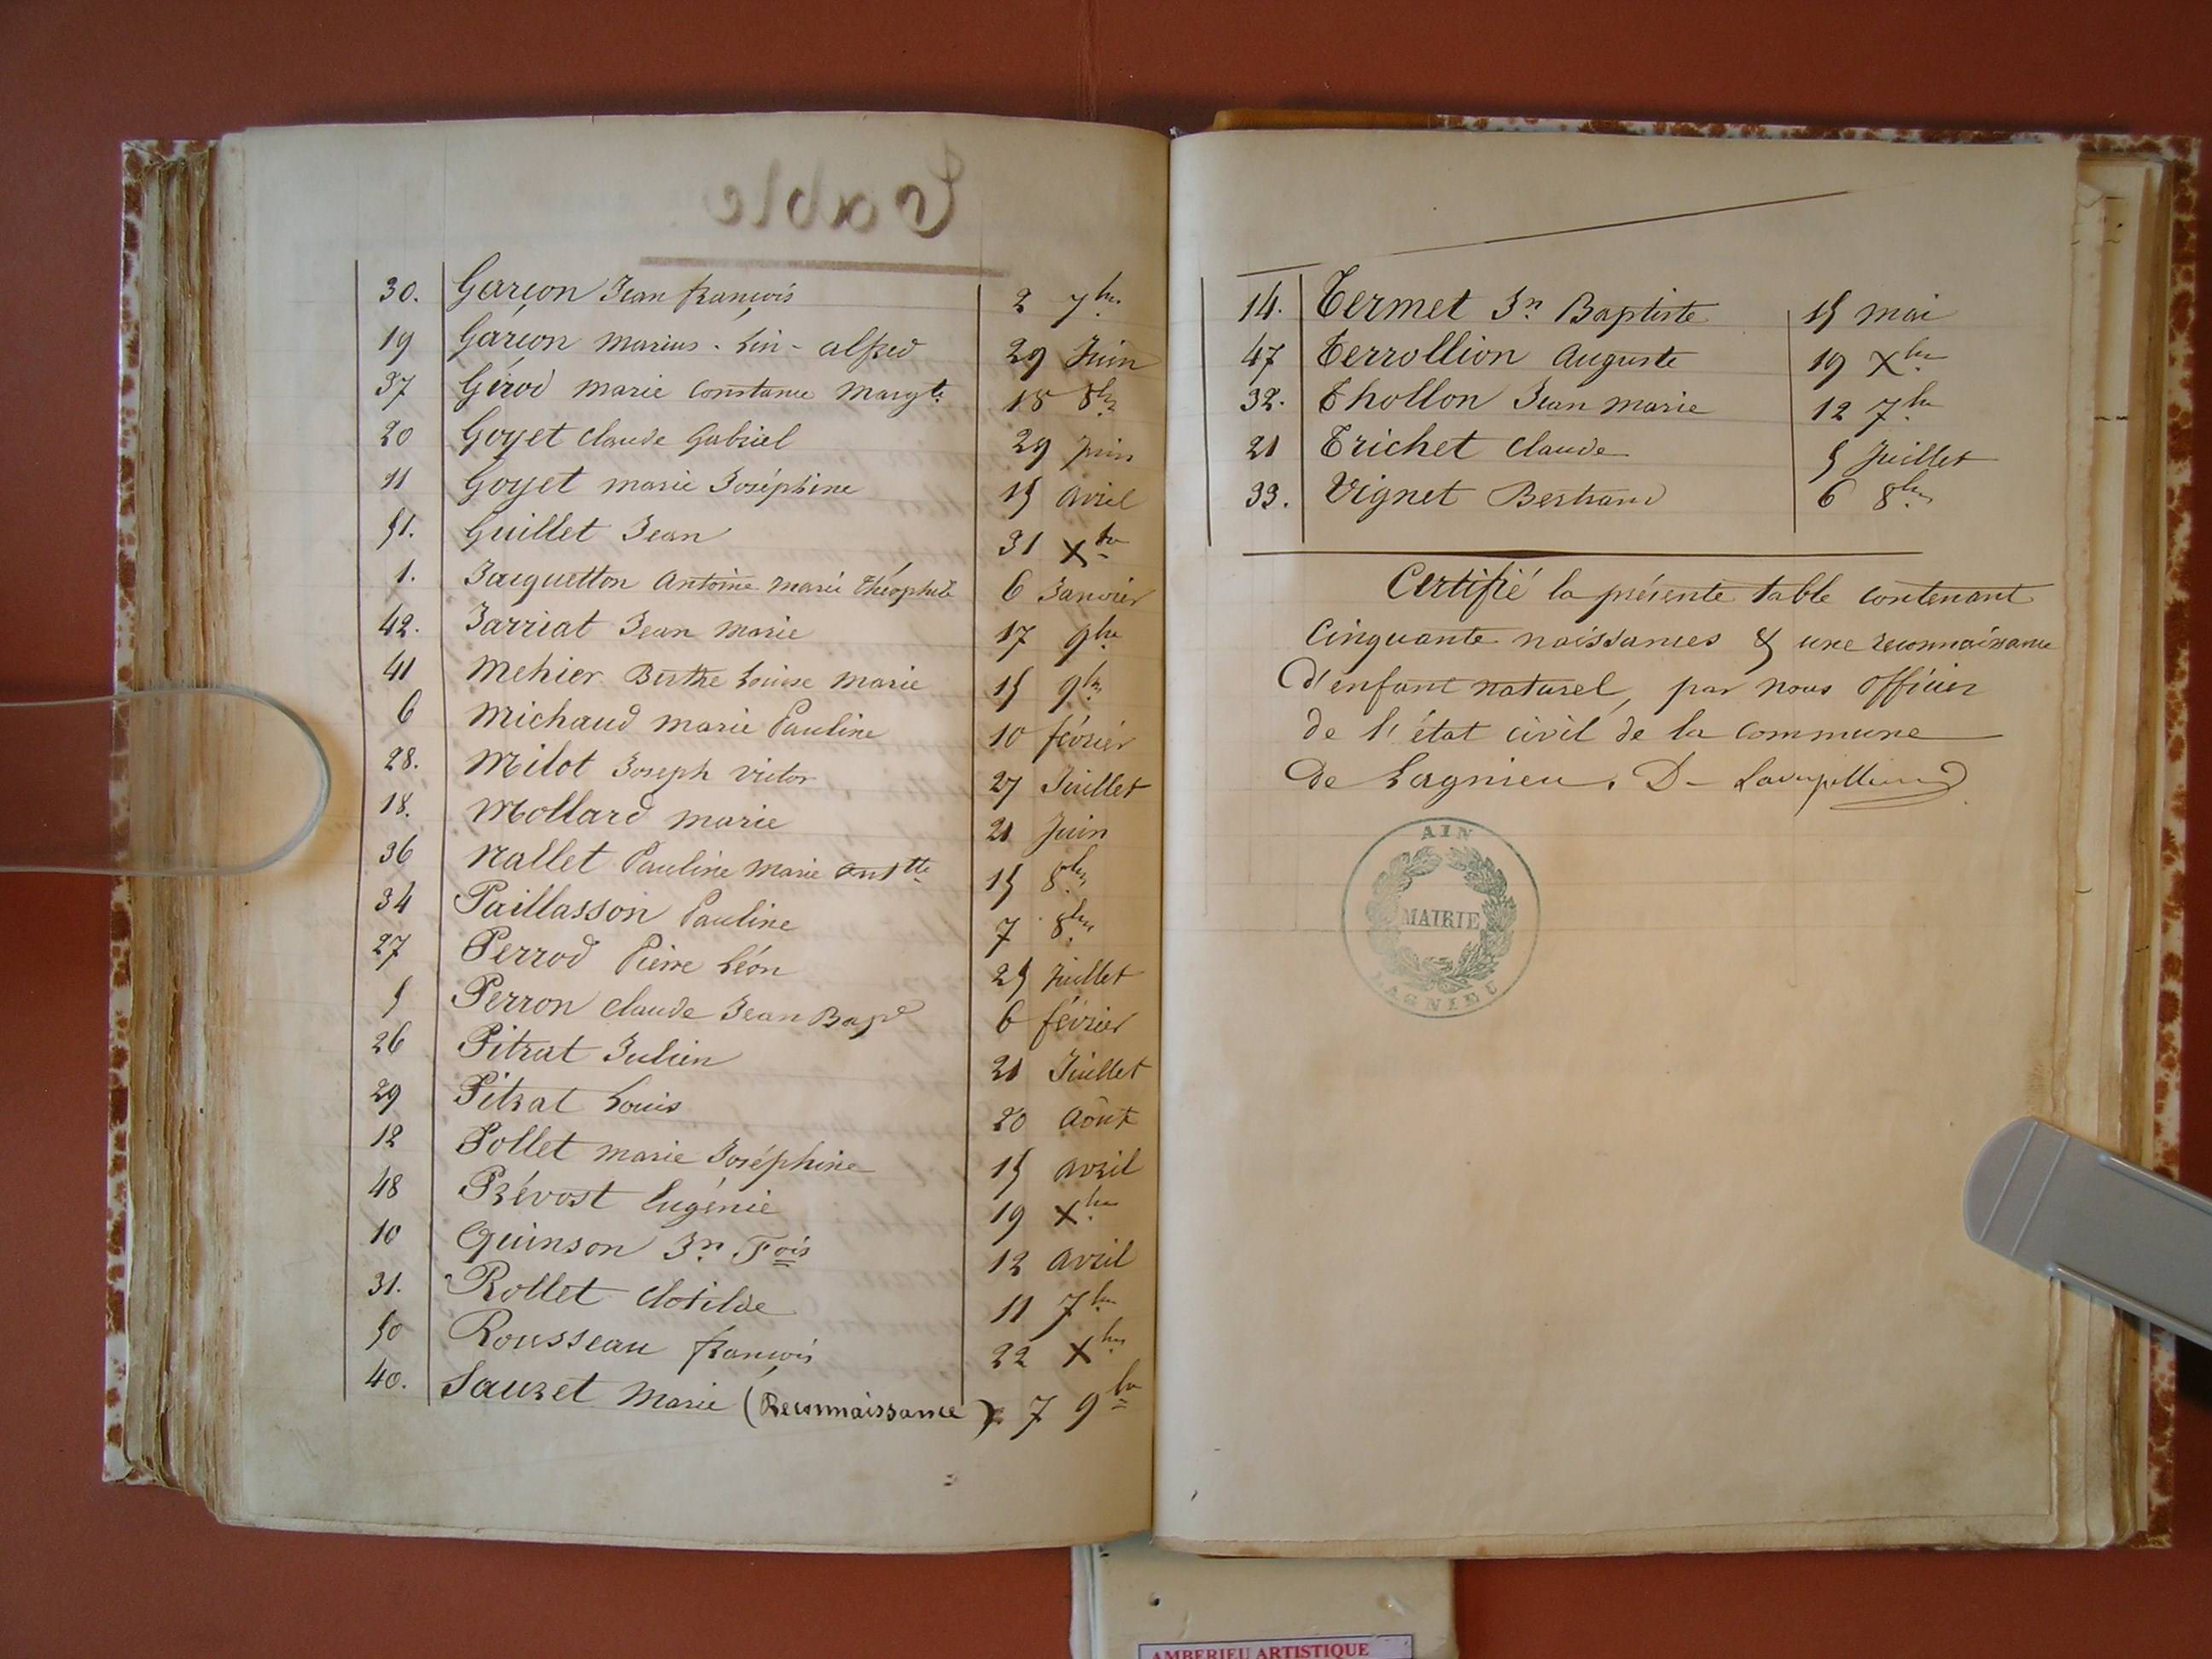 Table
30. Garçon Jean françois 2 7bre
19 Garçon Marius - Lin - alfred 29 Juin
37 Girod Marie Constance Margte 18 8bre
20 Goyet Claude Gabriel 29 Juin
11 Goyet Marie Joséphine 15 avril
51. Guillet Jean 31 Xbre
1. Jacquetton Antoine Marie Théophile 6 Janvier
42. Jarriat Jean Marie 17 9bre
41 Mehier Berthe Louise Marie 15 9bre
6 Michaud Marie Pauline 10 février
28. Milot Joseph Victor 27 Juillet
18. Mollard Marie 21 Juin
36 Nallet Pauline Marie Anttte 15 8bre
34 Paillasson Pauline 7 8bre
27 Perrod Pierre Léon 25 Juillet
5 Perron Claude Jean Bapte 6 février
26 Pitrat Julien 21 Juillet
29 Pitrat Louis 20 Août
12 Pollet Marie Joséphine 15 avril
48 Prévost Eugénie 19 Xbre
10 Quinson Jn Fois 12 avril
31. Rollet Clotilde 11 7bre
50 Rousseau françois 22 Xbre
40. Sauzet Marie (Reconnaissance) 7 9bre
14. Termet Jn Baptiste 15 mai
47 Terrollion Auguste 19 Xbre
32. Thollon Jean Marie 12 7bre
21 Trichet Claude 5 Juillet
33. Vignet Bertrand 6 8bre
Certifié la présente table contenant
Cinquante naissances & une reconnaissance
d'enfant naturel, par nous officier
de l'état civil de la commune
de Lagnieu. D-
AIN
MAIRIE
LAGNIEU
AMBERIEU ARTISTIQUE